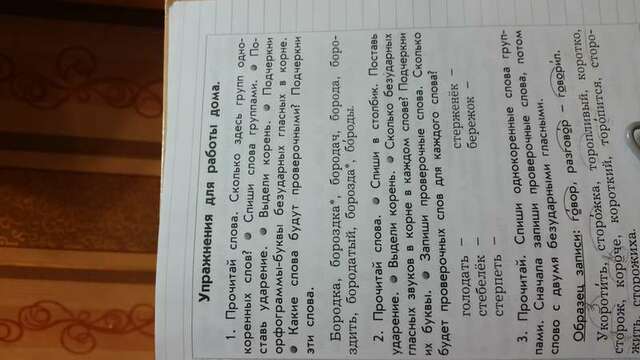 Упражнения для работы дома.
1. Прочитай слова. Сколько здесь групп одно-
коренных слов? ● Спиши слова группами. ● По-
ставь ударение. ● Выдели корень. ● Подчеркни
орфограммы-буквы безударных гласных в корне.
● Какие слова будут проверочными? Подчеркни
эти слова.
Бородка, бороздка*, бородач, борода, боро-
здить, бородатый, борозда*, бороды.
2. Прочитай слова. ● Спиши в столбик. Поставь
ударение. ● Выдели корень. ● Сколько безударных
гласных звуков в корне в каждом слове? Подчеркни
их буквы. ● Запиши проверочные слова. Сколько
будет проверочных слов для каждого слова?
голодать –
стебелёк –
стерпеть –
стерженёк –
бережок –
3. Прочитай. Спиши однокоренные слова груп-
пами. Сначала запиши проверочные слова, потом
слово с двумя безударными гласными.
Образец записи: говор, разговор – говорил.
Укоротить, сторожка, торопливый, коротко,
сторож, короче, короткий, торопится, сторо-
жить, сторожиха.